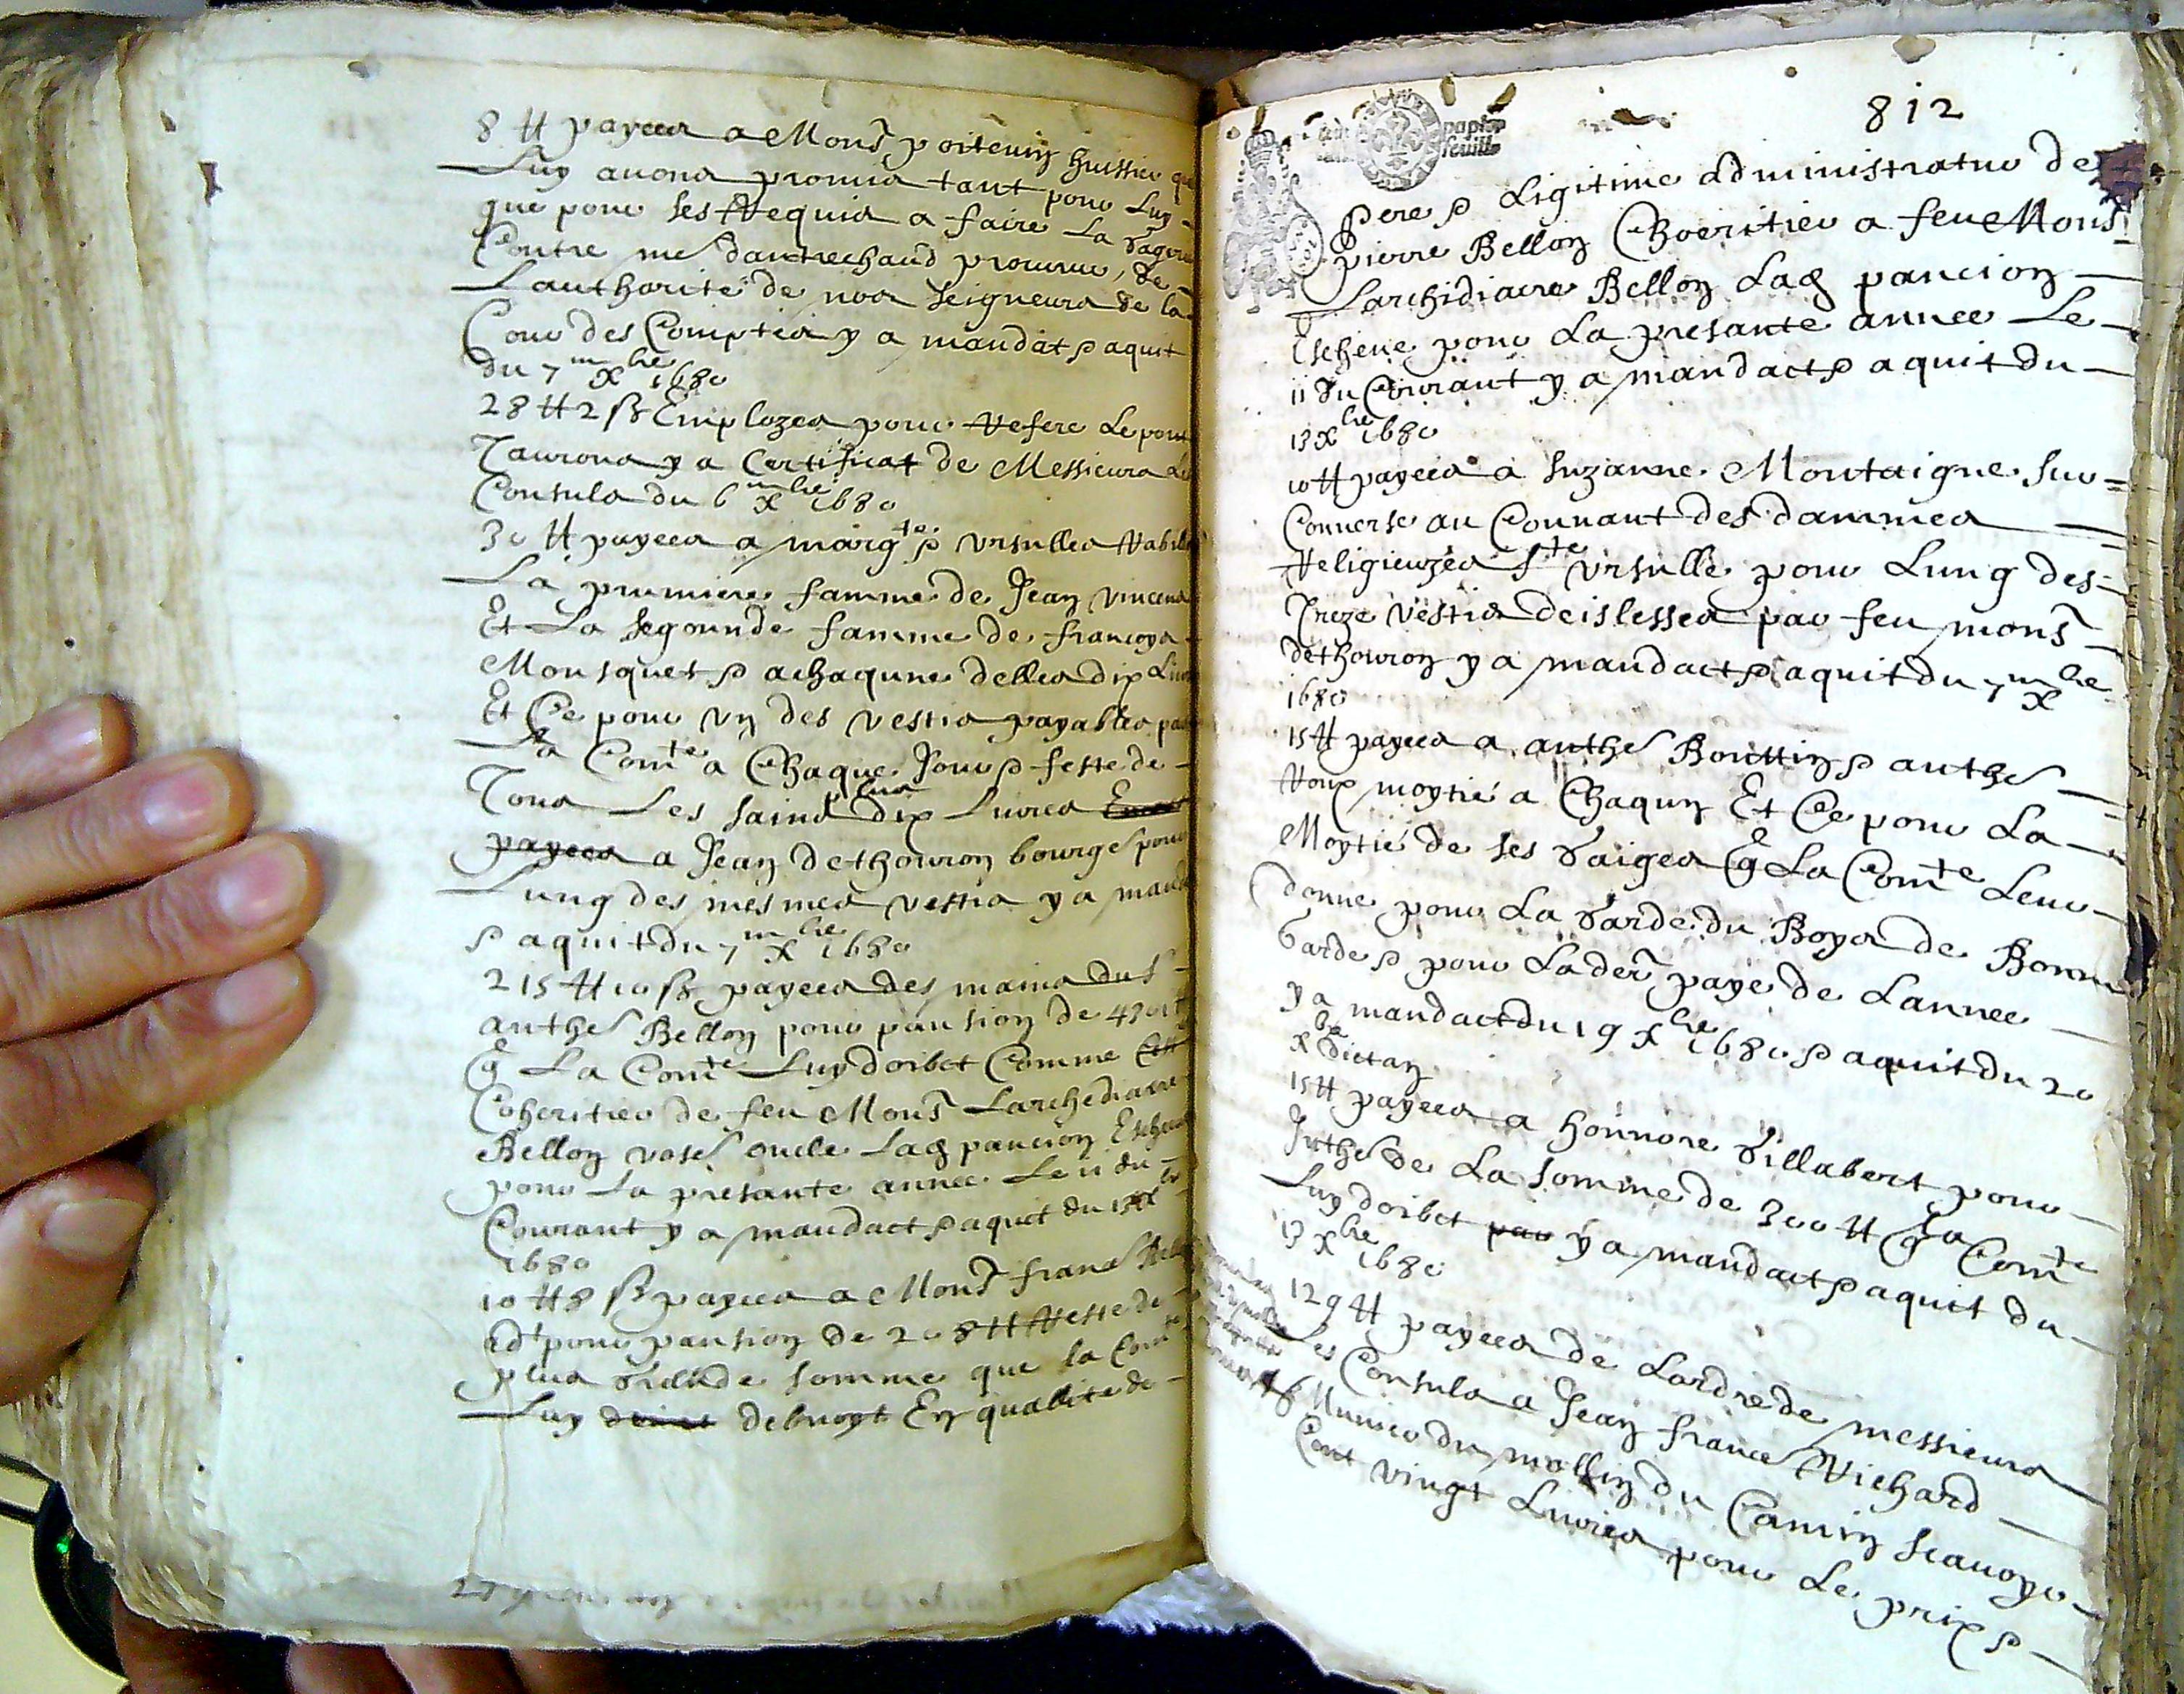 8 ₶ payees a Mons.r poiteuin huissier que
Luy auons promis tant pour Luy
que pour ses Requis a faire La Gagerie
Contre m.e dantrechaud procureur, de
Lauthorite de nos seigneurs de la
Cour des Comptes y a mandat & aquit
du 7.me X.bre 1680
28 ₶ 2 ß Emplozes pour Refere Le pont
Taurons y a Certificat de Messieurs les
Consuls du 6.me X.bre 1680
30 ₶ payees a marg.te & ursulles
La prumiere famme de Jean vincens
Et La segounde famme de francoys
Mousquet & a chaqune delles dix Liures
Et Ce pour un des vestis payables par
La Com.te a Chaque Jour & feste de
Tous Les sains plus dix Liures
payees a Jean dethouron bourge.s pour
Lung des mesmes vestis y a mandat
& aquit du 7.me X.bre 1680
215 ₶ 10 ß payees des mains du s.r
anthe. Bellon pour pansion de 4301 ₶
q La Com.te Luy doibct Comme
Coheritier de feu Mons.r Larchediacre
Bellon oncle Lad. pancion Escheue
pour La presante annee Le 11 du
Courant y a mandact & aquit du 13 X.bre
1680
10 ₶ 8 ß payees a Mons.r frans
ad.t pour pansion de 208 ₶ Reste de
plus Grande somme que la Com.te
Luy doict debuoyt En quallite de
812
papier
feuille
pere & Ligitime administratur de
pierre Bellon Choeritier a feu Mons.r
Larchidiacre Bellon Lad. pancion
Escheue pour La presante annee Le
11 du Courant y a mandact & aquit du
13 X.bre 1680
10 ₶ payees a suzanne Montaigne sur
Conuerse au Connant des dammes
Religieuzes s.te ursulle pour Lung des
Treze vestis deislesses par feu mons.r
dethouron y a mandact & aquit du 7.me X.bre
1680
15 ₶ payees a anthe. Bouttin & anthe.
Roux moytie a Chaqun Et Ce pour La
Moytie de ses Gaiges q La Com.te Leur
donne pour La Garde du Boys de
Garde & pour La der.e paye de Lannee
y a mandact du 19 X.bre 1680 & aquit du 20
X.bre dictan
15 ₶ payees a honnore Gillabert pour
Inthe. de La somme de 300 ₶ q La Com.te
Luy doibct par y a mandact & aquit du
13 X.bre 1680
129 ₶ payees de Lordre de messieurs
Les Consuls a Jean france. Richard
Munier du mollin du Camin scauoyr
Cent vingt Liures pour Le prix &